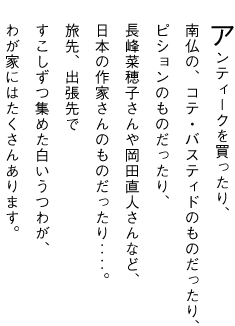 アンティークを買ったり、
南仏の、コテ・バスティドのものだったり、
ピションのものだったり、
長峰菜穂子さんや岡田直人さんなど、
日本の作家さんのものだったり‥‥。
旅先、出張先で
すこしずつ集めた白いうつわが、
わが家にはたくさんあります。